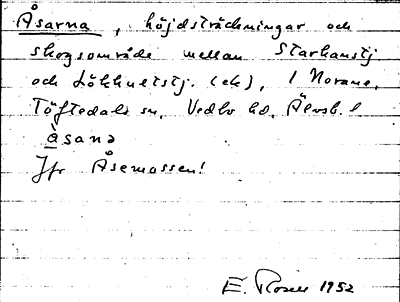 Åsarna, höjdsträckningar och
skogsområde mellan Starkanstj
och Lökhultstj. (ek), i Norane,
Töftedals sn, Vedbo hd, Älvsb. l
àsanə
Jfr Åsemossen!
E. Rosell 1952